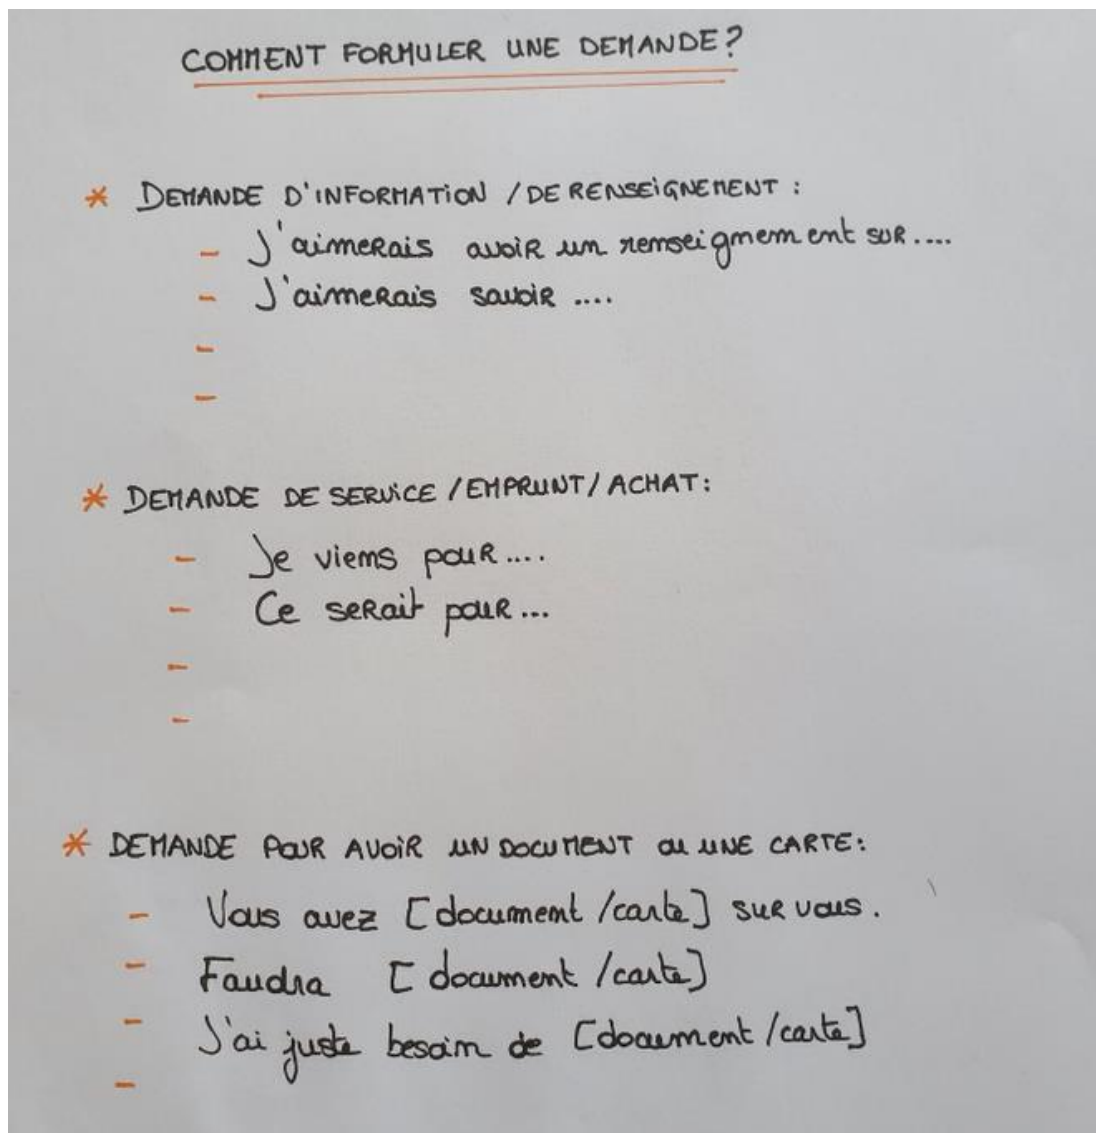 COMMENT FORMULER UNE DEMANDE?
* DEMANDE D'INFORMATION / DE RENSEIGNEMENT :
- J'aimerais avoir un renseignement sur....
- J'aimerais savoir ....
-
-
* DEMANDE DE SERVICE / EMPRUNT / ACHAT:
- Je viens pour....
- Ce serait pour...
-
-
* DEMANDE POUR AVOIR UN DOCUMENT OU UNE CARTE:
- Vous avez [document /carte] sur vous.
- Faudra [document /carte]
- J'ai juste besoin de [document /carte]
-